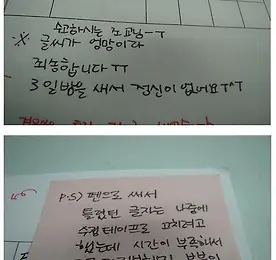 수고하시는 조교님ㅡㅜ
※ 글씨가 엉망이라
죄송합니다ㅜㅜ
3일밤을 새서 정신이 없어요ㅜ^ㅜ
P.S) 펜으로 써서
틀렸던 글자는 나중에
수정테이프로 고치려고
했는데 시간이 부족해서